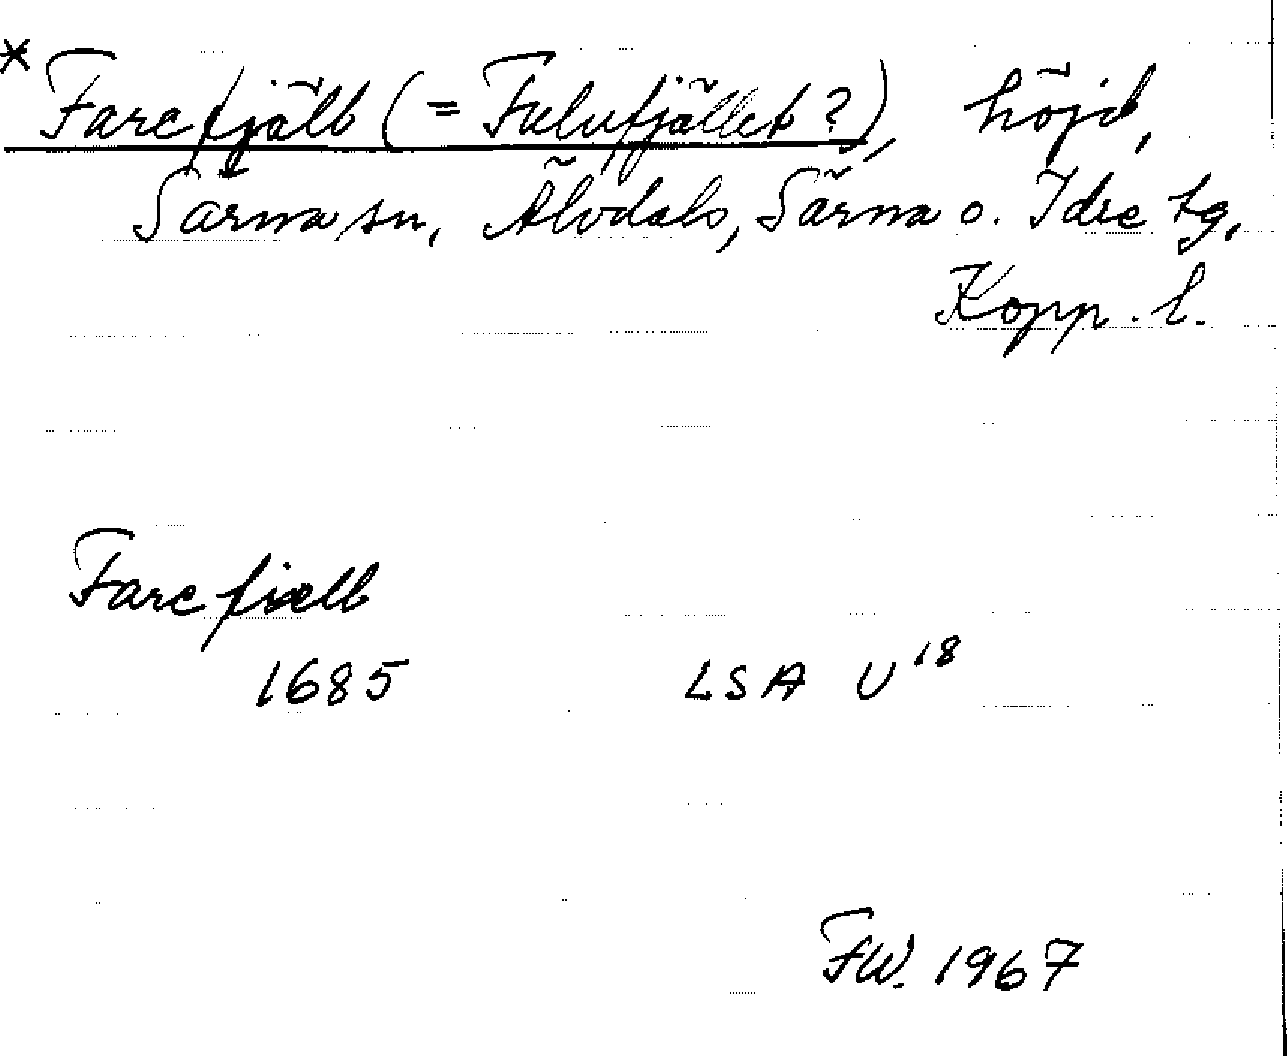 * Farefjäll (= Fulufjället?), höjd,
Särna sn, Älvdals, Särna o. Idre tg,
Kopp. l.
Farefiæll
1685 LSA U¹⁸
FW. 1967